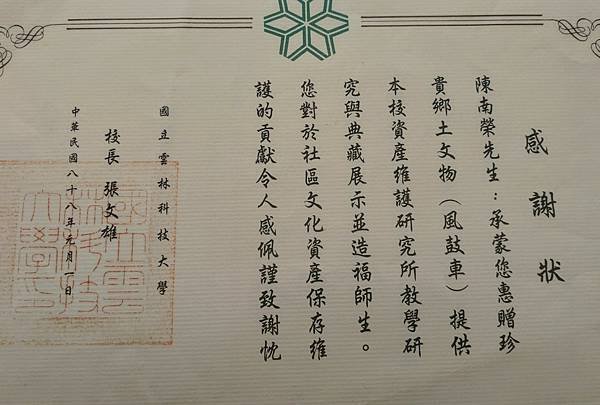 感謝狀
陳南榮先生：承蒙您惠贈珍
貴鄉土文物（風鼓車）提供
本校資產維護研究所教學研
究與典藏展示並造福師生。
您對於社區文化資產保存維
護的貢獻令人感佩謹致謝忱
國立雲林科技大學
校長 張文雄
中華民國八十八年元月一日
國立雲林科技大學印